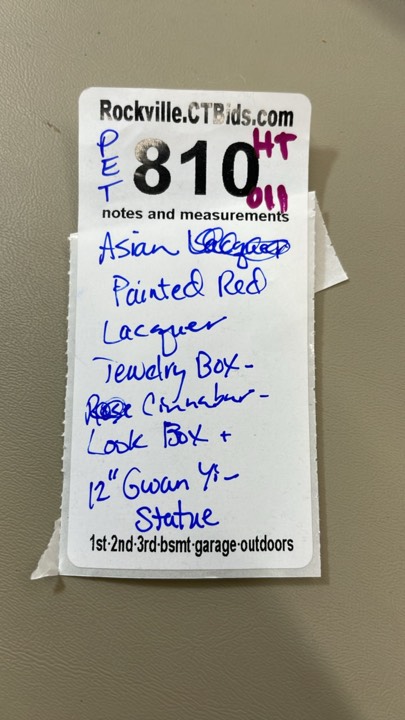 Rockville.CTBids.com
PET 810 HT
011
notes and measurements
Asian
Painted Red
Lacquer
Jewelry Box-
Cinnabar-
Look Box +
12" Gwan Yi-
Statue
1st·2nd·3rd·bsmt·garage·outdoors